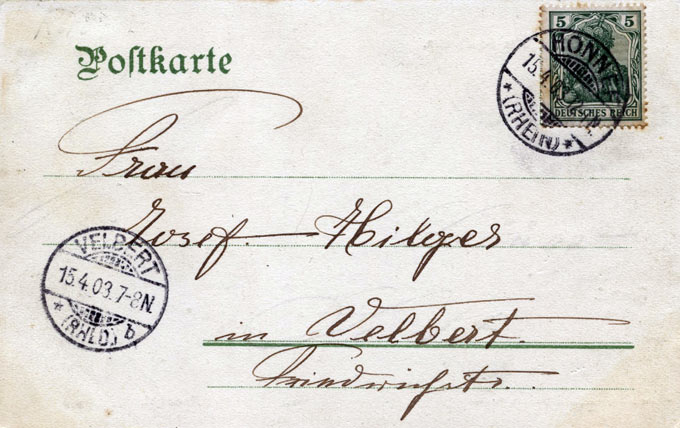 5 5
DEUTSCHES REICH
HONNEF
15.4.03
*(RHEIN)*
Postkarte
Frau
Josef Hilger
in Velbert.
Friedrichstr.
VELBERT
15.4.03.7-8N.
*(RHLD.) b